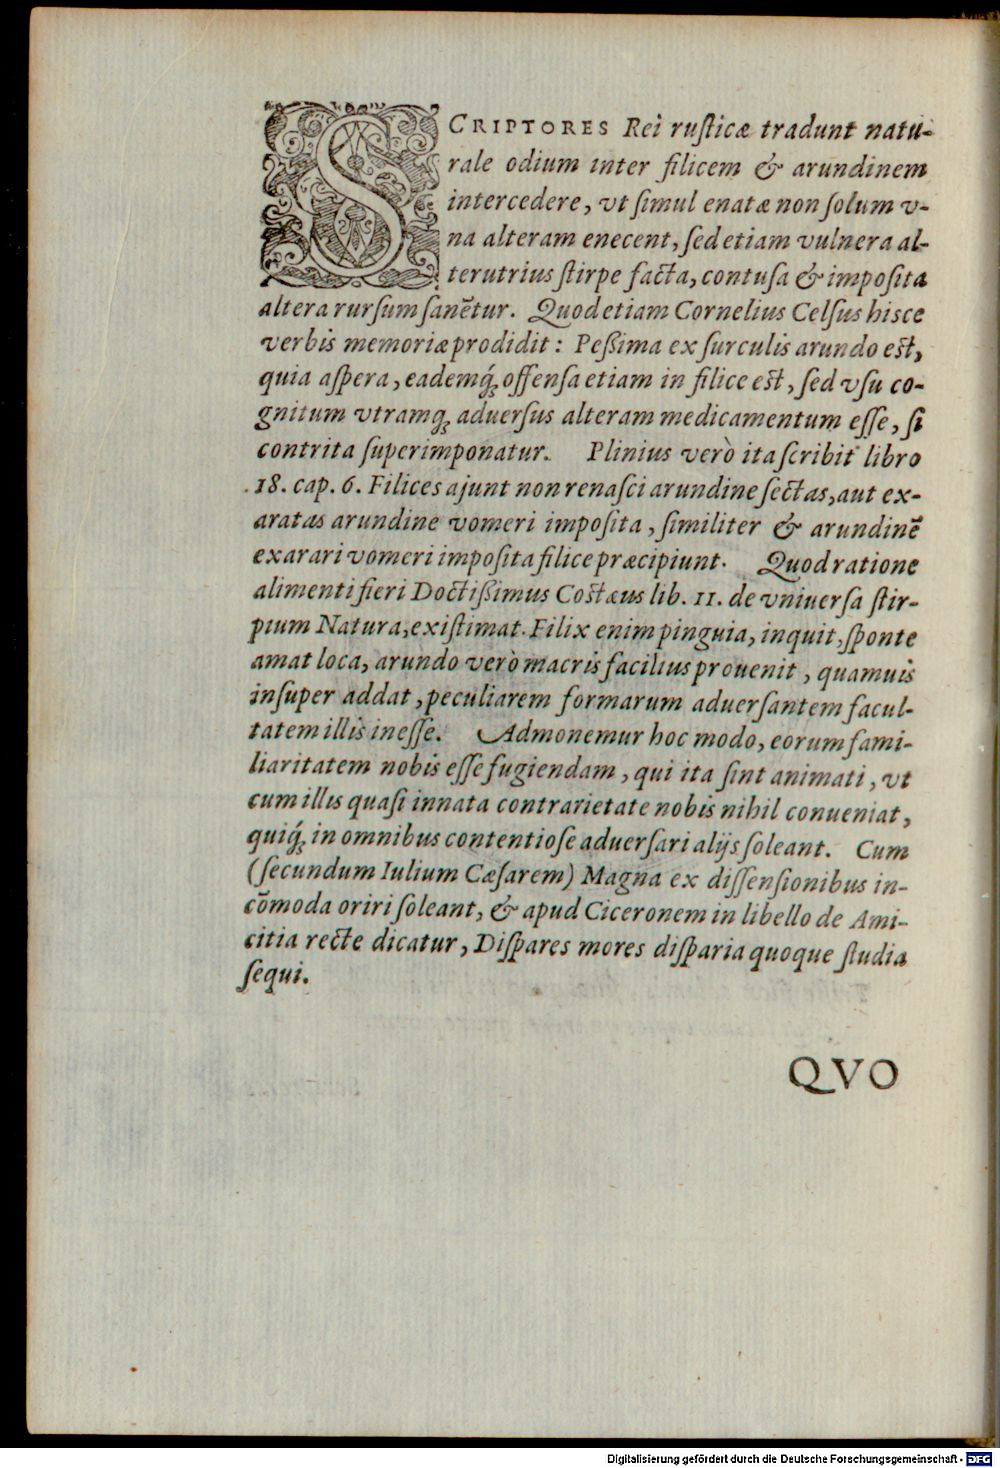 SCRIPTORES Rei ruſticæ tradunt natu-
rale odium inter filicem & arundinem
intercedere, vt ſimul enatæ non ſolum v-
na alteram enecent, ſed etiam vulnera al-
terutrius ſtirpe facta, contuſa & impoſita
altera rurſum ſanẽtur. Quod etiam Cornelius Celſus hisce
verbis memoriæ prodidit: Peßima ex ſurculis arundo est,
quia aſpera, eademq́ꝫ offenſa etiam in filice est, ſed vſu co-
gnitum vtramqꝫ aduerſus alteram medicamentum eſſe, ſi
contrita ſuperimponatur. Plinius verò ita ſcribit libro
18. cap. 6. Filices ajunt non renaſci arundine ſectas, aut ex-
aratas arundine vomeri impoſita, ſimiliter & arundinẽ
exarari vomeri impoſita filice præcipiunt. Quod ratione
alimenti fieri Doctißimus Costæus lib. 11. de vniuerſa ſtir-
pium Natura, exiſtimat. Filix enim pinguia, inquit, ſponte
amat loca, arundo verò macris facilius prouenit, quamuis
inſuper addat, peculiarem formarum aduerſantem facul-
tatem illis ineſſe. Admonemur hoc modo, eorum fami-
liaritatem nobis eſſe fugiendam, qui ita ſint animati, vt
cum illis quaſi innata contrarietate nobis nihil conueniat,
quiq́ꝫ in omnibus contentioſe aduerſari alijs ſoleant. Cum
(ſecundum Iulium Cæſarem) Magna ex diſſenſionibus in-
cõmoda oriri ſoleant, & apud Ciceronem in libello de Ami-
citia recte dicatur, Diſpares mores diſparia quoque ſtudia
ſequi.
QVO
Digitalisierung gefördert durch die Deutsche Forschungsgemeinschaft - DFG